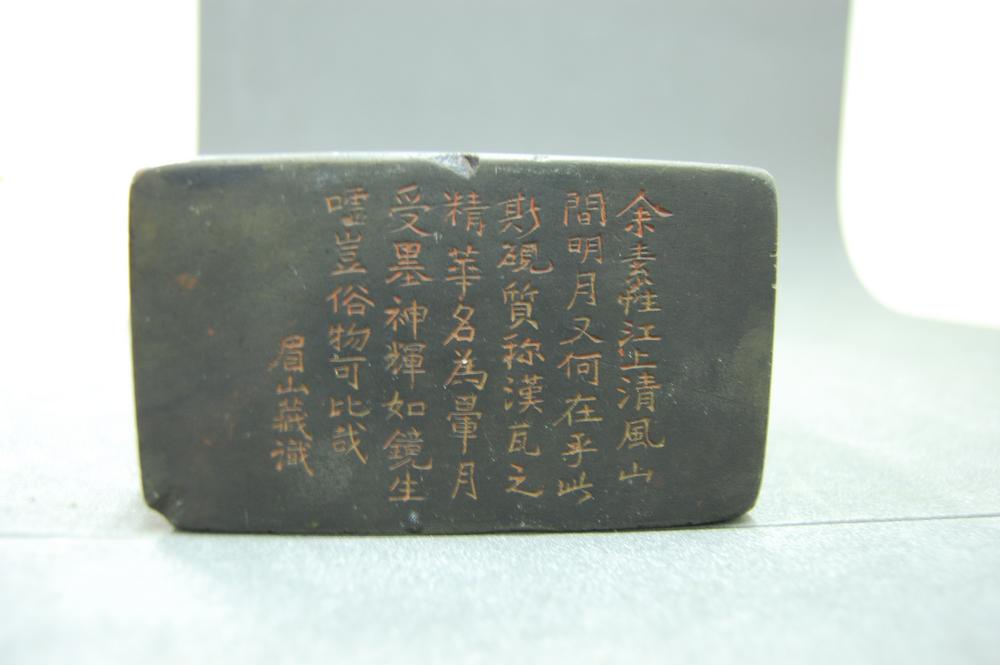 余素性江上清風山
間明月又何在乎此
斯硯質称漢瓦之
精華名為暈月
受墨神輝如鏡生
嘘豈俗物可比哉
眉山蘓識